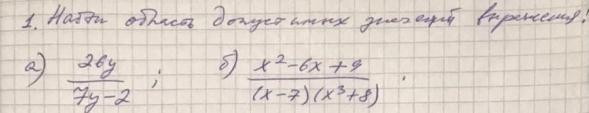 1. Найти область допустимых значений выражения!
а) 26y / 7y-2 ; б) x²-6x+9 / (x-7)(x³+8) .